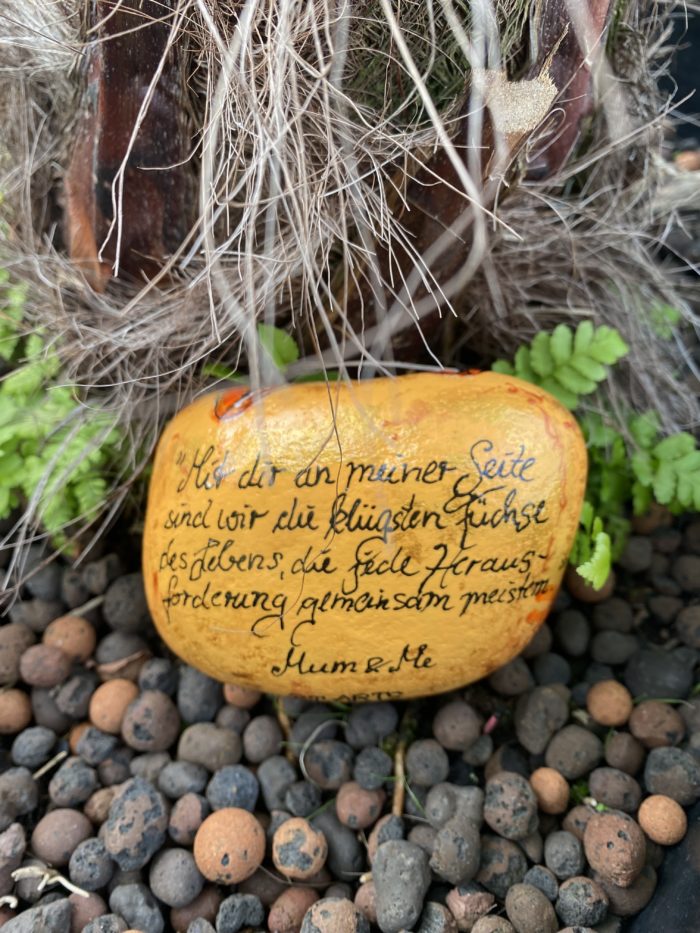 "Mit dir an meiner Seite
sind wir die klügsten Füchse
des Lebens, die jede Heraus-
forderung gemeinsam meistern
Mum & Me